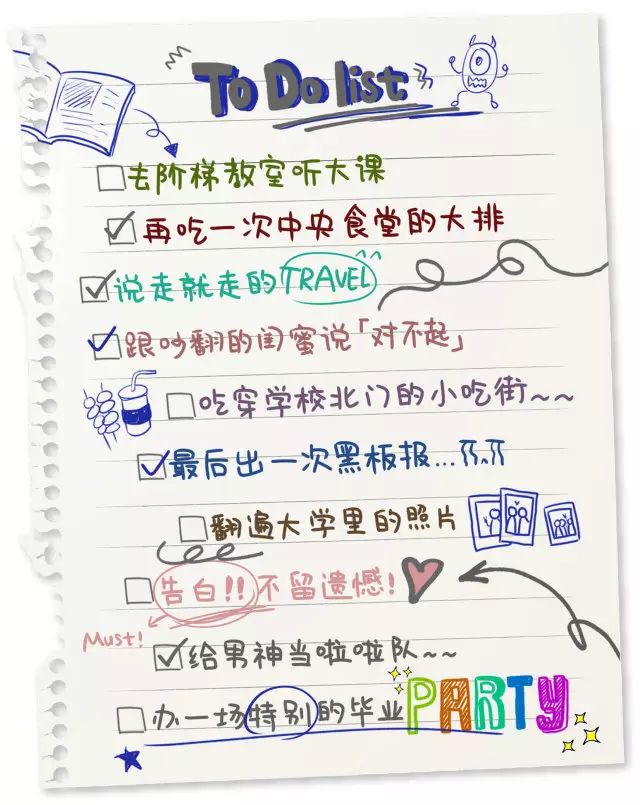 To Do list
去阶梯教室听大课
再吃一次中央食堂的大排
说走就走的TRAVEL
跟吵翻的闺蜜说「对不起」
吃穿学校北门的小吃街~~
最后出一次黑板报...
翻遍大学里的照片
告白!!不留遗憾!
Must!
给男神当啦啦队~~
办一场特别的毕业PARTY